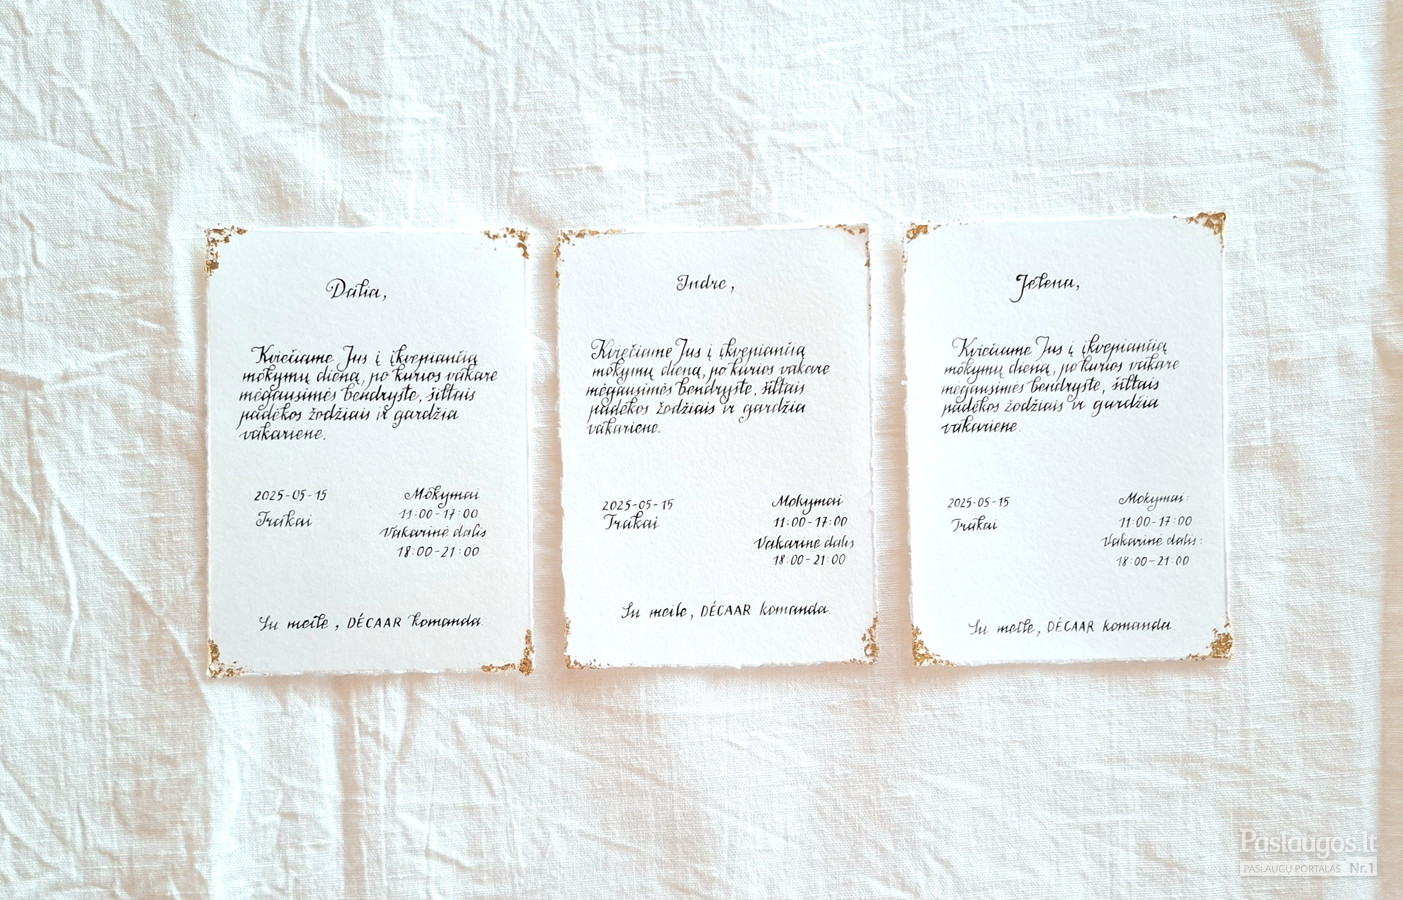 Dalia,
Kviečiame Jus į įkvepiančią
mokymų dieną, po kurios vakare
mėgausimės bendryste, šiltais
padėkos žodžiais ir gardžia
vakariene.
2025-05-15
Trakai
Mokymai
11:00-17:00
Vakarinė dalis
18:00-21:00
Su meile, DÉCAAR komanda
Indre,
Kviečiame Jus į įkvepiančią
mokymų dieną, po kurios vakare
mėgausimės bendryste, šiltais
padėkos žodžiais ir gardžia
vakariene.
2025-05-15
Trakai
Mokymai
11:00-17:00
Vakarinė dalis
18:00-21:00
Su meile, DÉCAAR komanda
Jelena,
Kviečiame Jus į įkvepiančią
mokymų dieną, po kurios vakare
mėgausimės bendryste, šiltais
padėkos žodžiais ir gardžia
vakariene.
2025-05-15
Trakai
Mokymai:
11:00-17:00
Vakarinė dalis:
18:00-21:00
Su meile, DÉCAAR komanda
Paslaugos.lt
PASLAUGŲ PORTALAS Nr.1